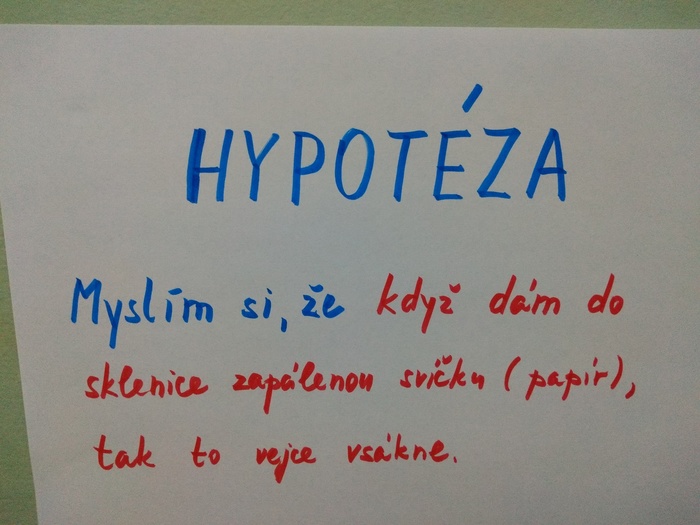 HYPOTÉZA
Myslím si, že když dám do
sklenice zapálenou svíčku (papír),
tak to vejce vsákne.